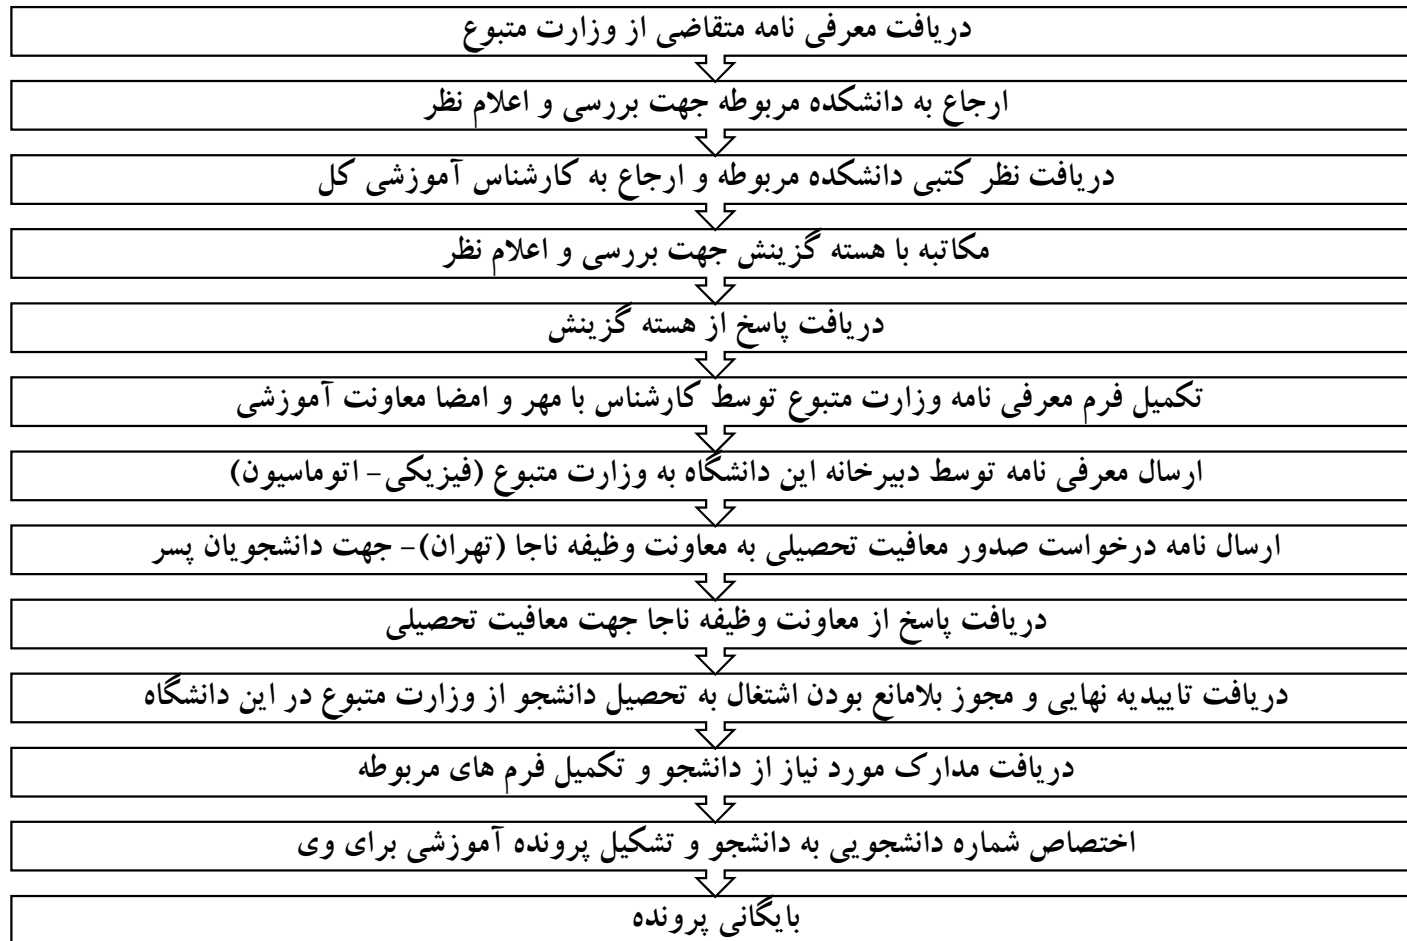 دریافت معرفی نامه متقاضی از وزارت متبوع
ارجاع به دانشکده مربوطه جهت بررسی و اعلام نظر
دریافت نظر کتبی دانشکده مربوطه و ارجاع به کارشناس آموزشی کل
مکاتبه با هسته گزینش جهت بررسی و اعلام نظر
دریافت پاسخ از هسته گزینش
تکمیل فرم معرفی نامه وزارت متبوع توسط کارشناس با مهر و امضا معاونت آموزشی
ارسال معرفی نامه توسط دبیرخانه این دانشگاه به وزارت متبوع (فیزیکی- اتوماسیون)
ارسال نامه درخواست صدور معافیت تحصیلی به معاونت وظیفه ناجا (تهران)- جهت دانشجویان پسر
دریافت پاسخ از معاونت وظیفه ناجا جهت معافیت تحصیلی
دریافت تاییدیه نهایی و مجوز بلامانع بودن اشتغال به تحصیل دانشجو از وزارت متبوع در این دانشگاه
دریافت مدارک مورد نیاز از دانشجو و تکمیل فرم های مربوطه
اختصاص شماره دانشجویی به دانشجو و تشکیل پرونده آموزشی برای وی
بایگانی پرونده